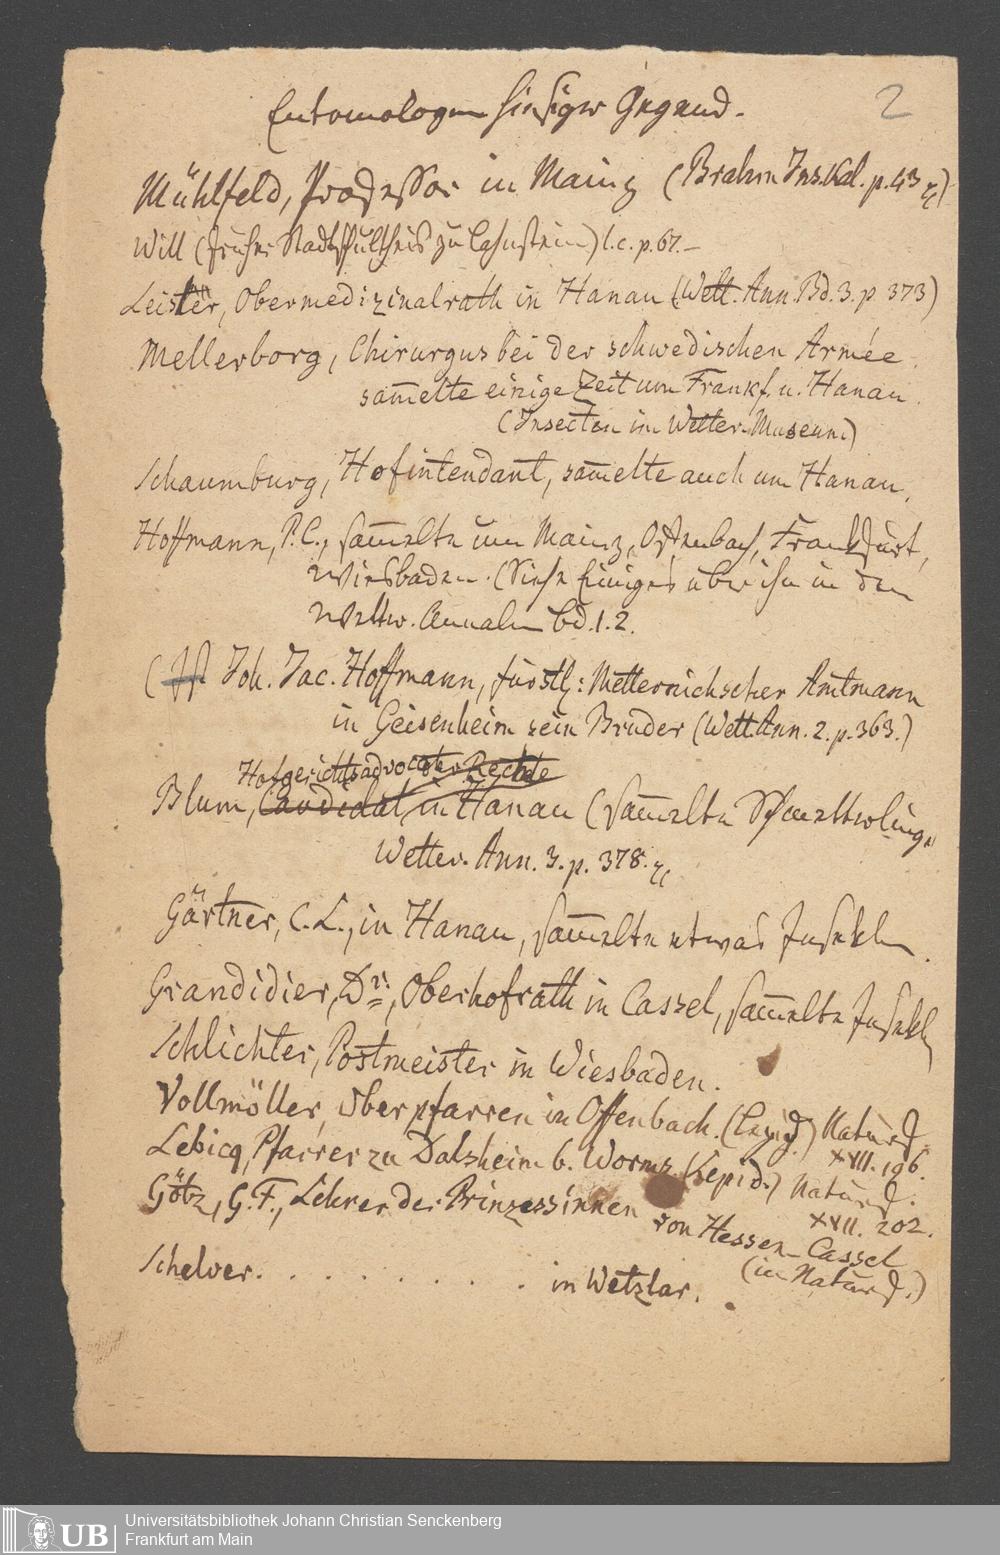 Entomologen hiesiger Gegend.
2
Mühlfeld, Professor in Mainz (Brahm Ins. Kal. p. 43 
Will (früher Stadtschultheis zu Lahnstein) l. c. p. 67. –
Leisler, Obermedizinalrath in Hanau (Wett. Ann. Bd. 3. p 373)
Mellerborg, Chirurgus bei der schwedischen Armée
sam̄elte einige Zeit um Frankf. u. Hanau.
(Insecten im Wetter. Museum)
Schaumburg, Hofintendant, sam̄elte auch um Hanau.
Hoffmann, P. C., sam̄elte um Mainz, Offenbach, Frankfurt,
Wiesbaden. (Siehe Einiges über ihn in den
Wetter. Annalen bd. 1. 2.
(Ist Joh. Jac. Hoffmann, fürstl: Metternichscher Amtmann
in Geisenheim sein Bruder (Wett. Ann. 2. p. 363.)
Hofgerichtsadvocat der Rechte
Blum, Candidat, in Hanau (sam̄elte Schmetterlinge
Wetter. Ann. 3. p. 378.
Gärtner, C. L., in Hanau, sam̄elte etwas Insekten.
Grandidier, Dr., Oberhofrath in Cassel, sam̄elte Insekten
Schlichter, Postmeister in Wiesbaden.
Vollmöller, Oberpfarrer in Offenbach. (Lepid.) Naturf.
XVII. 196.
Lebicq, Pfarrer zu Dalsheim b. Worms (Lepid.) Naturf.
XVII. 202.
Götz, G. F., Lehrer der Prinzessinnen von Hessen-Cassel
(in Naturf.)
Schelver. . . . . . . . . . in Wetzlar.
UB
Universitätsbibliothek Johann Christian Senckenberg
Frankfurt am Main